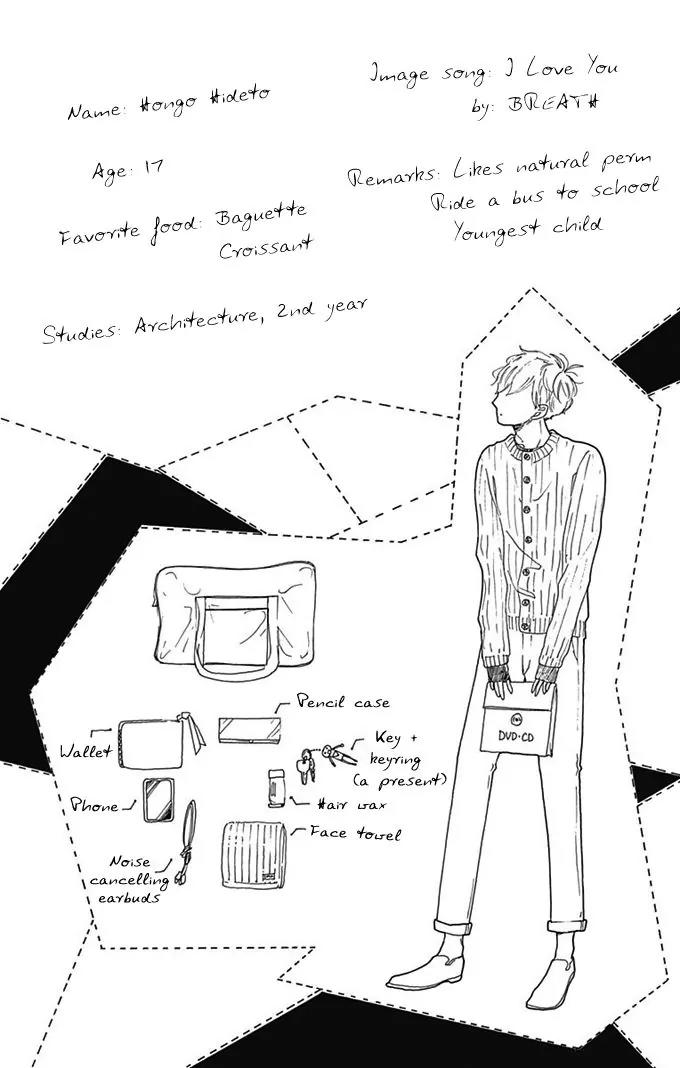 Name: Hongo Hideto
Age: 17
Favorite food: Baguette
Croissant
Studies: Architecture, 2nd year
Image song: I Love You
by: BREATH
Remarks: Likes natural perm
Ride a bus to school
Youngest child
Pencil case
Wallet
Key +
keyring
(a present)
Phone
Hair wax
Face towel
Noise
cancelling
earbuds
DVD·CD